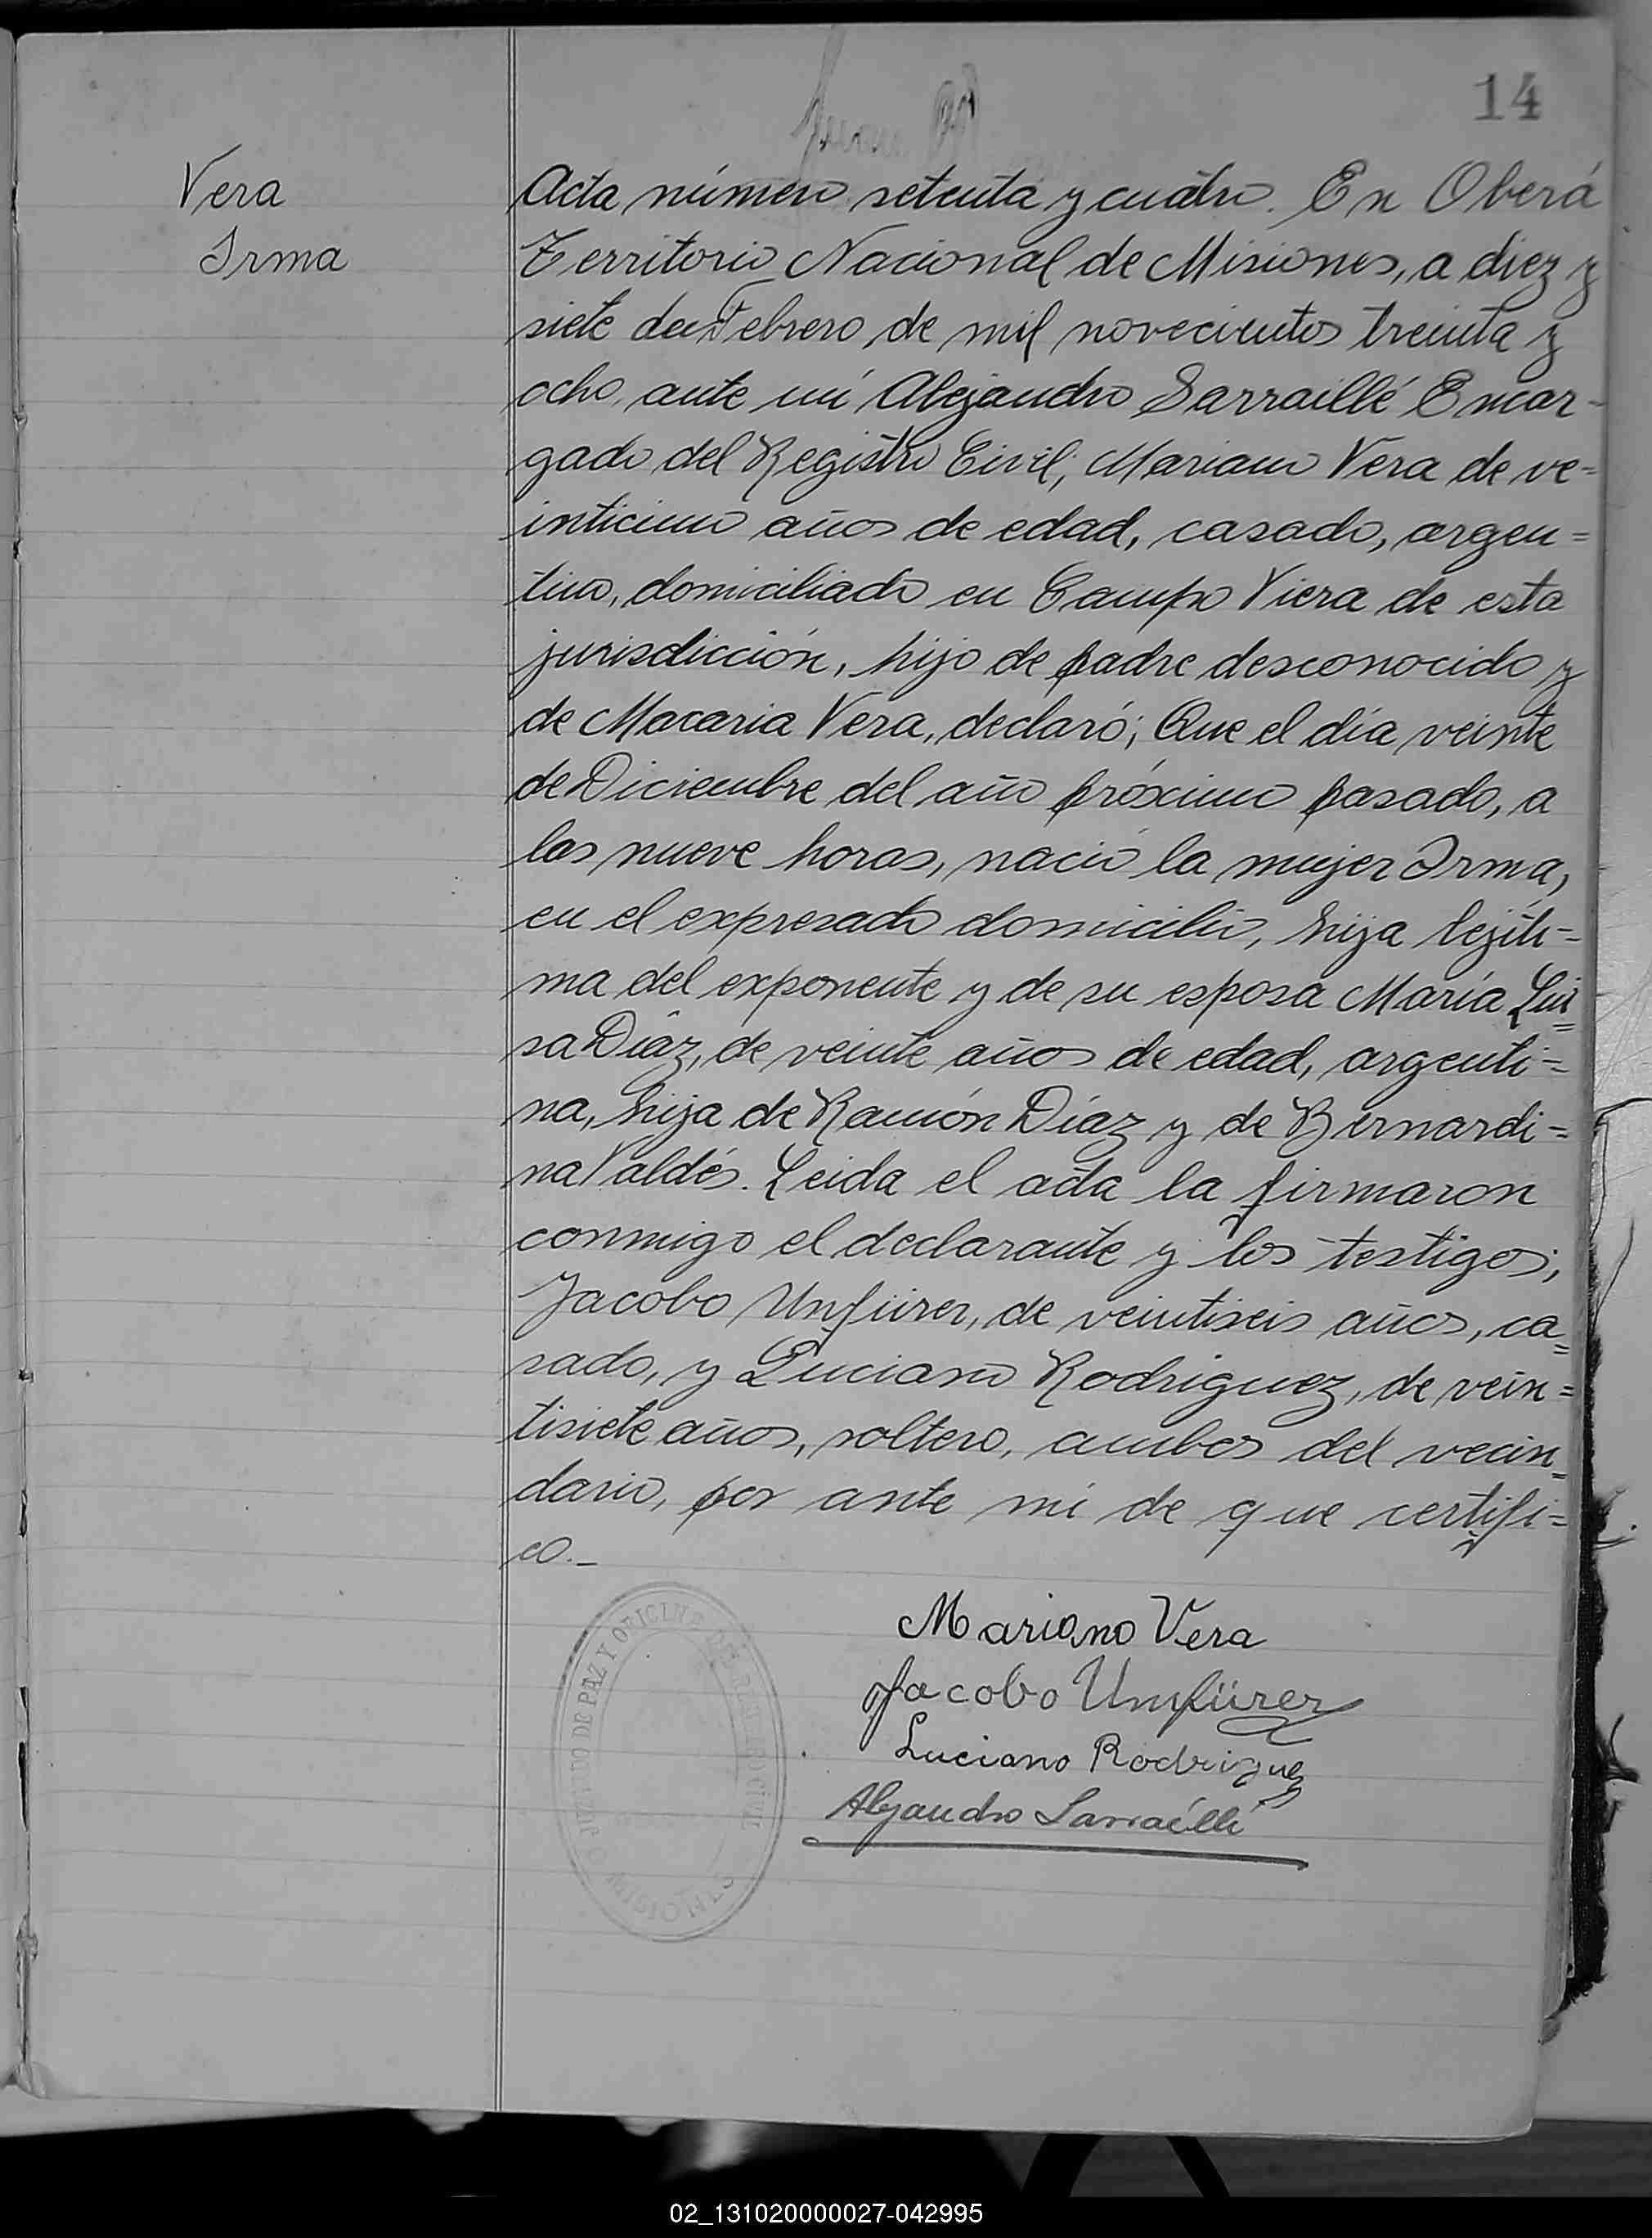 14
Vera
Irma
Acta número setenta y cuatro. En Oberá
Territorio Nacional de Misiones, a diez y
siete de Febrero de mil novecientos treinta y
ocho, ante mí Alejandro Sarraillé Encar-
gado del Registro Civil; Mariano Vera de ve=
inticinco años de edad, casado, argen=
tino, domiciliado en Campo Viera de esta
jurisdicción, hijo de padre desconocido y
de Macaria Vera, declaró; Que el día veinte
de Diciembre del año próximo pasado, a
las nueve horas, nació la mujer Irma,
en el expresado domicilio, hija lejíti=
ma del exponente y de su esposa María Lui=
sa Díaz, de veinte años de edad, argenti=
na, hija de Ramón Díaz y de Bernardi=
na Valdés. Leida el acta la firmaron
conmigo el declarante y los testigos;
Jacobo Unfürer, de veintiseis años, ca=
sado, y Luciano Rodriguez, de vein=
tisiete años, soltero, ambos del vecin=
dario, por ante mí de que certifi=
co._
Mariano Vera
Jacobo Umfürer
Luciano Rodriguez
Alejandro Sarraillé
JUZGADO DE PAZ Y OFICINA DE REGISTRO CIVIL
MISIONES
02_131020000027-042995